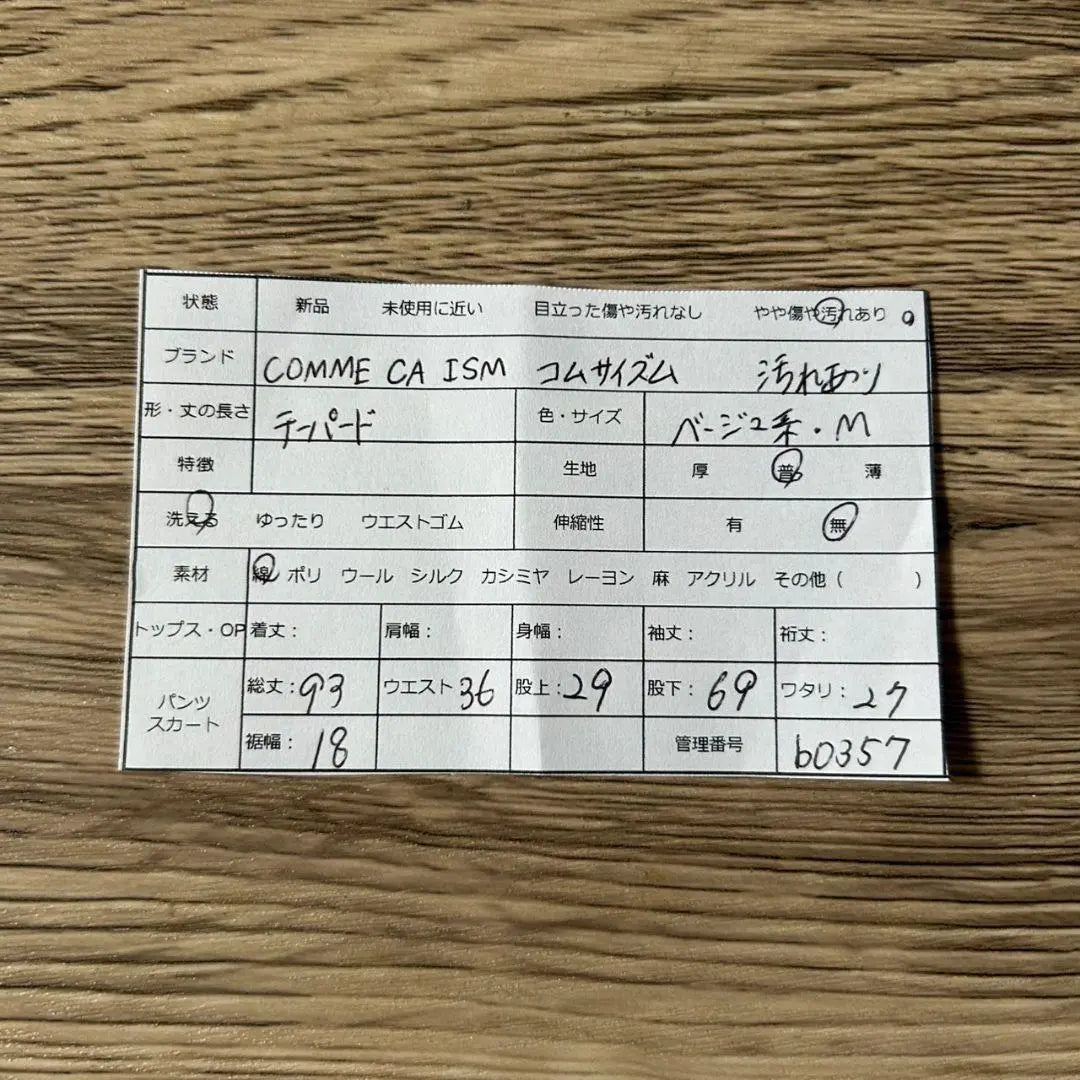 状態 新品 未使用に近い 目立った傷や汚れなし やや傷や汚れあり
ブランド COMME CA ISM コムサイズム 汚れあり
形・丈の長さ テーパード 色・サイズ ベージュ系・M
特徴 生地 厚 普 薄
洗える ゆったり ウエストゴム 伸縮性 有 無
素材 綿 ポリ ウール シルク カシミヤ レーヨン 麻 アクリル その他( )
トップス・OP 着丈: 肩幅: 身幅: 袖丈: 裄丈:
パンツ スカート 総丈:93 ウエスト 36 股上:29 股下:69 ワタリ:27
裾幅:18 管理番号 b0357